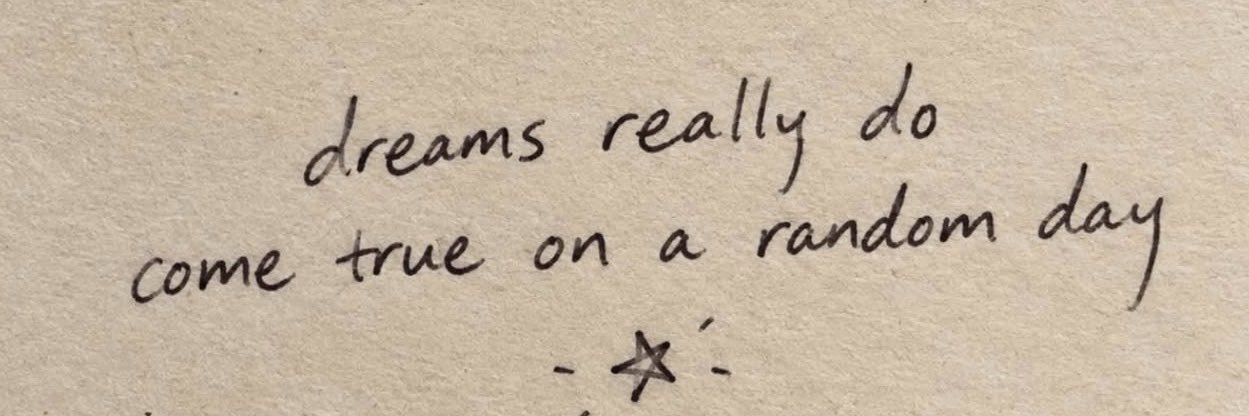 dreams really do
come true on a random day